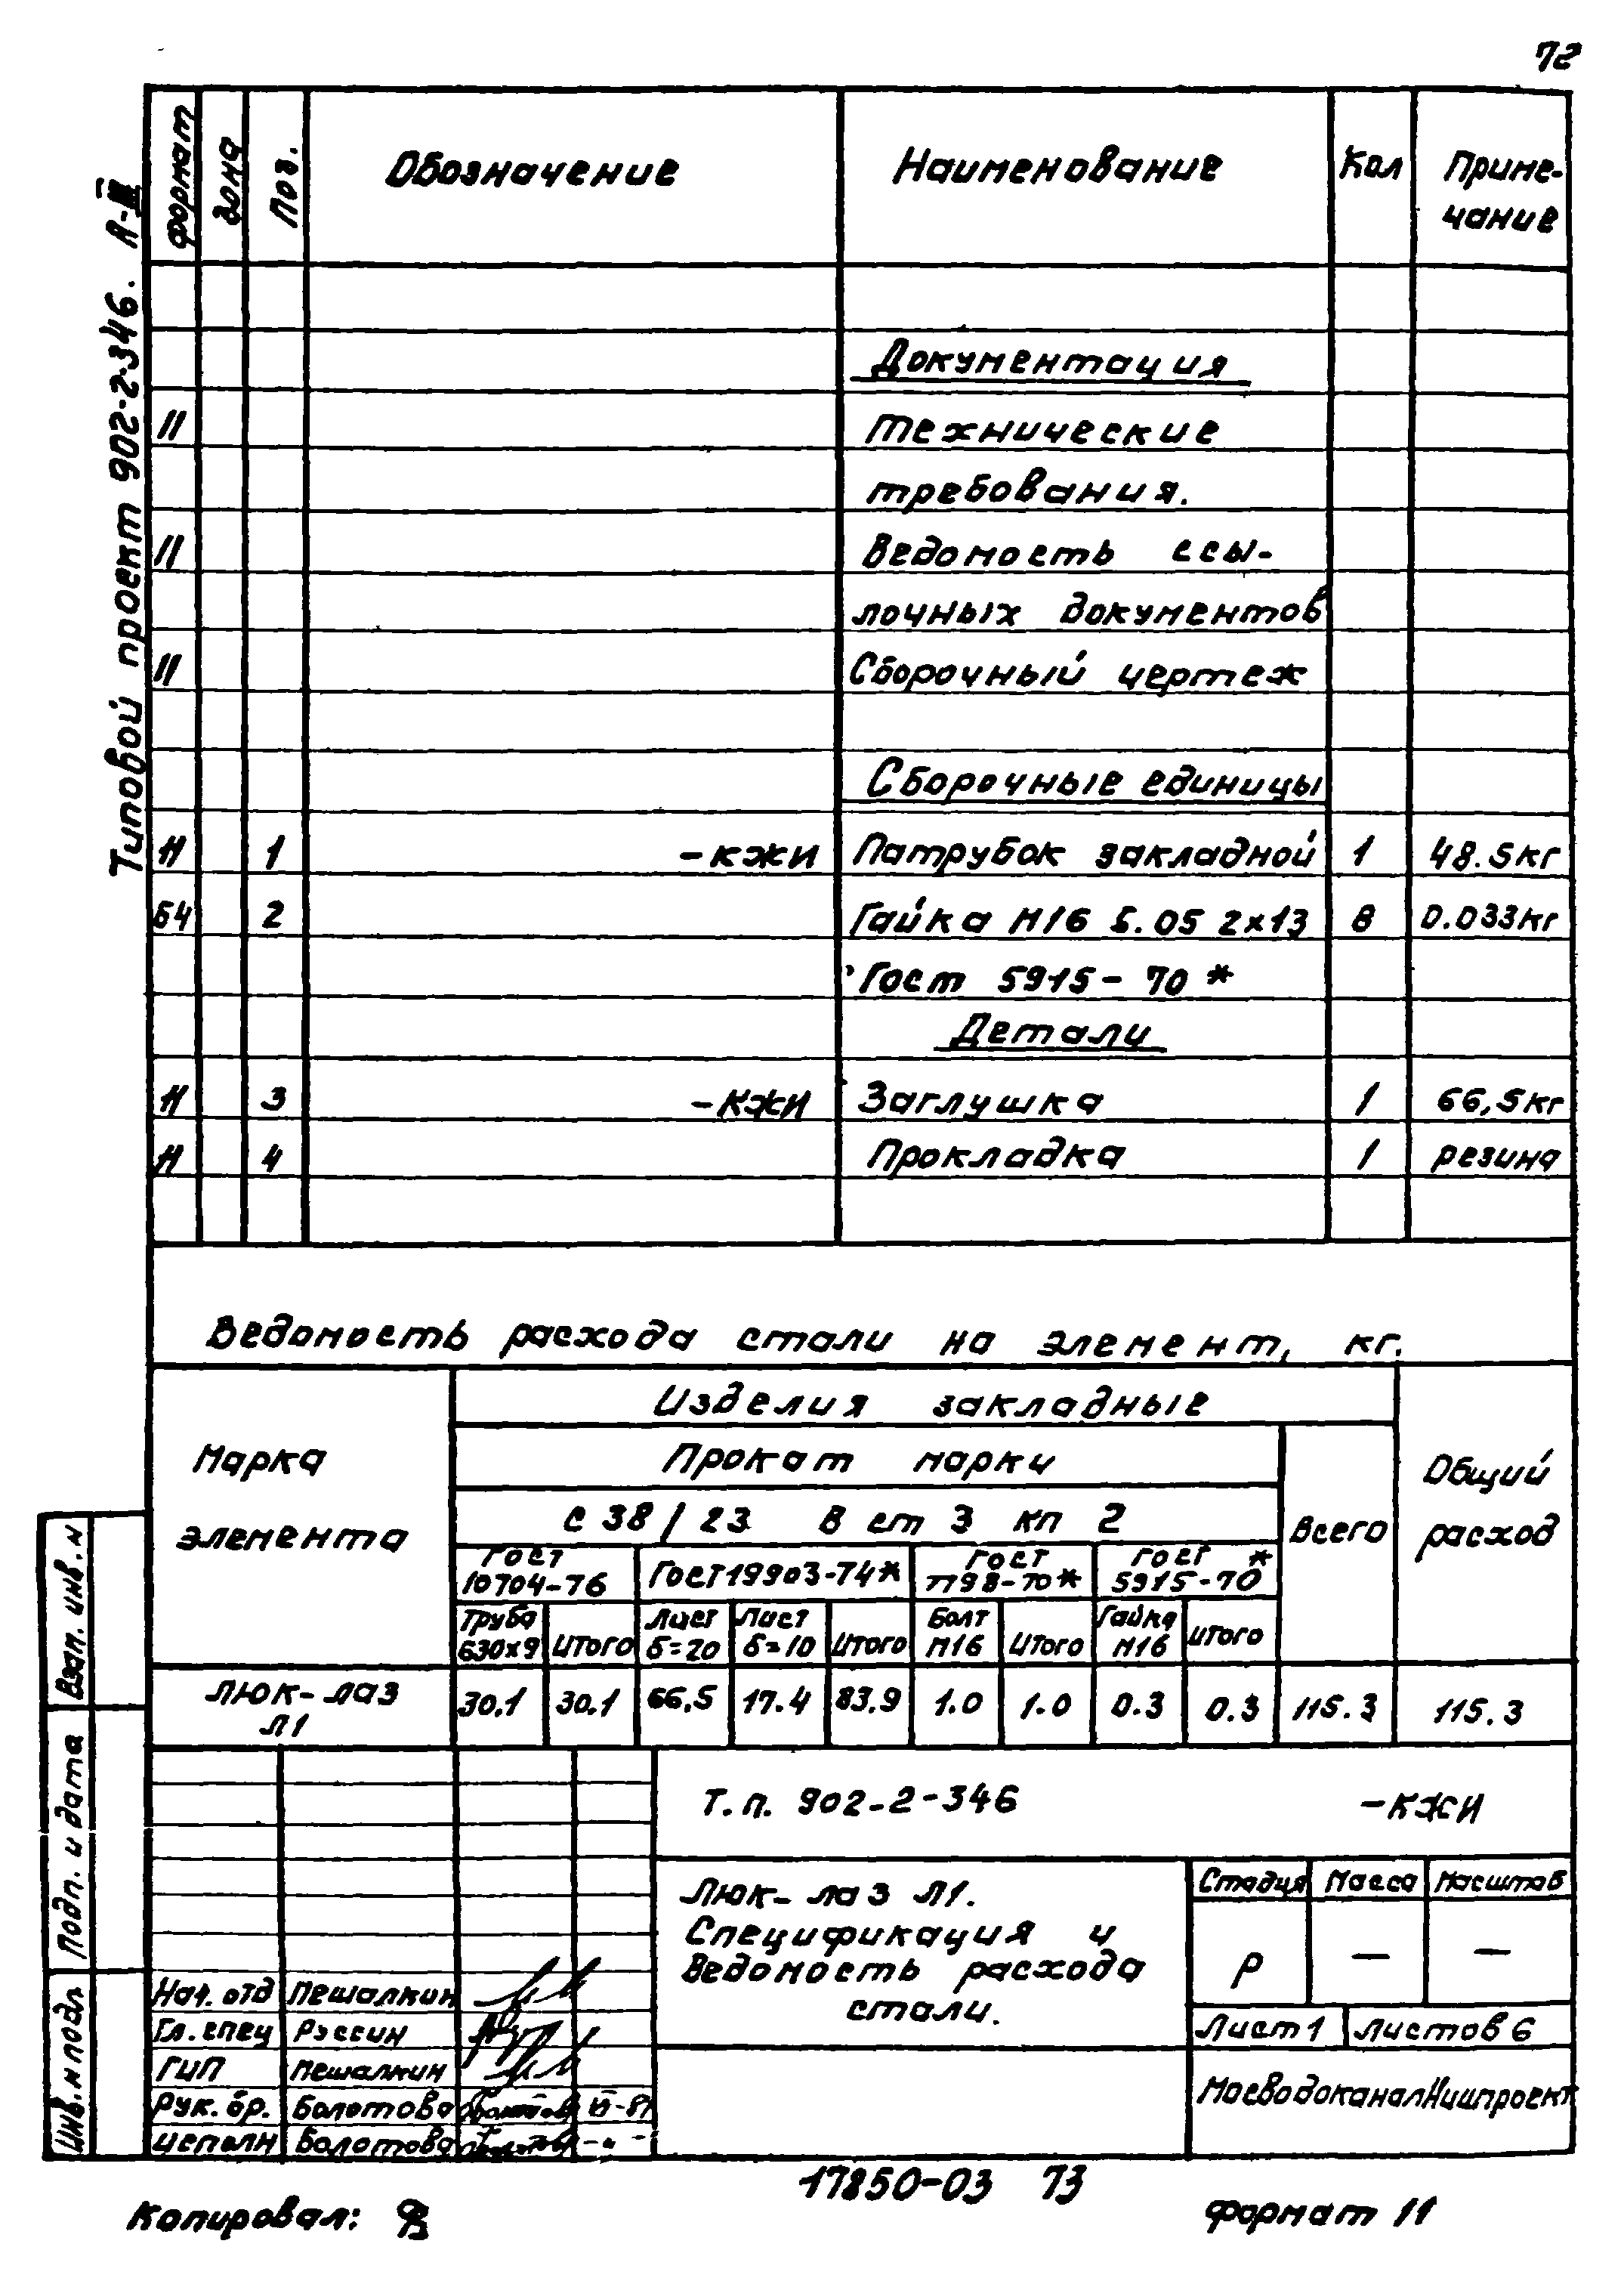 72
Типовой проект 902-2-346. А-III
Формат Зона Поз. Обозначение Наименование Кол Приме-
чание
Документация
11 Технические
требования.
11 Ведомость ссы-
лочных документов
11 Сборочный чертеж
Сборочные единицы
11 1 -КЖИ Патрубок закладной 1 48.5кг
БЧ 2 Гайка М16 5.05 2х13 8 0.033кг
Гост 5915-70*
Детали
11 3 -КЖИ Заглушка 1 66,5кг
11 4 Прокладка 1 резина
Ведомость расхода стали на элемент, кг.
Марка
элемента
Изделия закладные
Прокат марки
С 38/23 В ст 3 кп 2
Всего
Общий
расход
Гост
10704-76
Гост 19903-74*
Гост
7798-70*
Гост
5915-70*
Труба
630х9
Итого
Лист
δ=20
Лист
δ=10
Итого
Болт
М16
Итого
Гайка
М16
Итого
Люк-лаз
Л1
30.1 30.1 66,5 17.4 83.9 1.0 1.0 0.3 0.3 115.3 115.3
Взам. инв. N
Подп. и дата
Инв. N подл
Т.п. 902-2-346 -КЖИ
Люк-лаз Л1.
Спецификация и
Ведомость расхода
стали.
Стадия Масса Масштаб
Р — —
Лист 1 Листов 6
МосводоканалНИИпроект
Нач. отд Пешалкин
Гл. спец Рэссин
ГИП Пешалкин
Рук. бр. Болотова
Исполн Болотова
17850-03 73
Копировал:
Формат 11